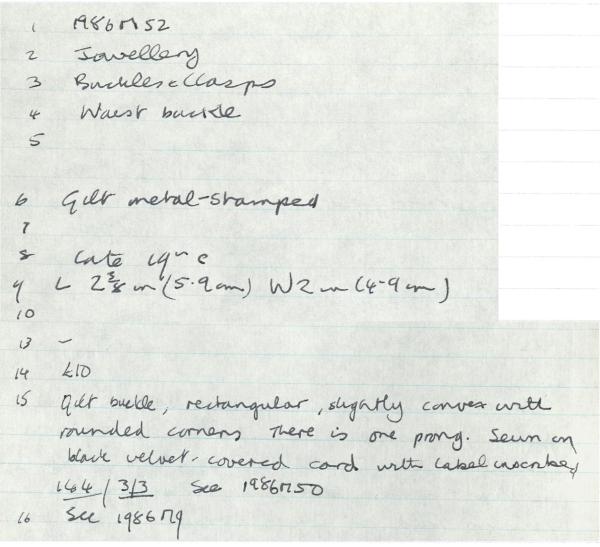 1 1986M52
2 Jewellery
3 Buckles & Clasps
4 Waist buckle
5
6 Gilt metal-stamped
7
8 Late 19th c
9 L 2 3/8 in (5.9cm) W2 in (4.9cm)
10
13 -
14 £10
15 Gilt buckle, rectangular, slightly convex with
rounded corners There is one prong. Sewn on
black velvet-covered card with label inscribed
164 / 3/3 See 1986M50
16 See 1986M9